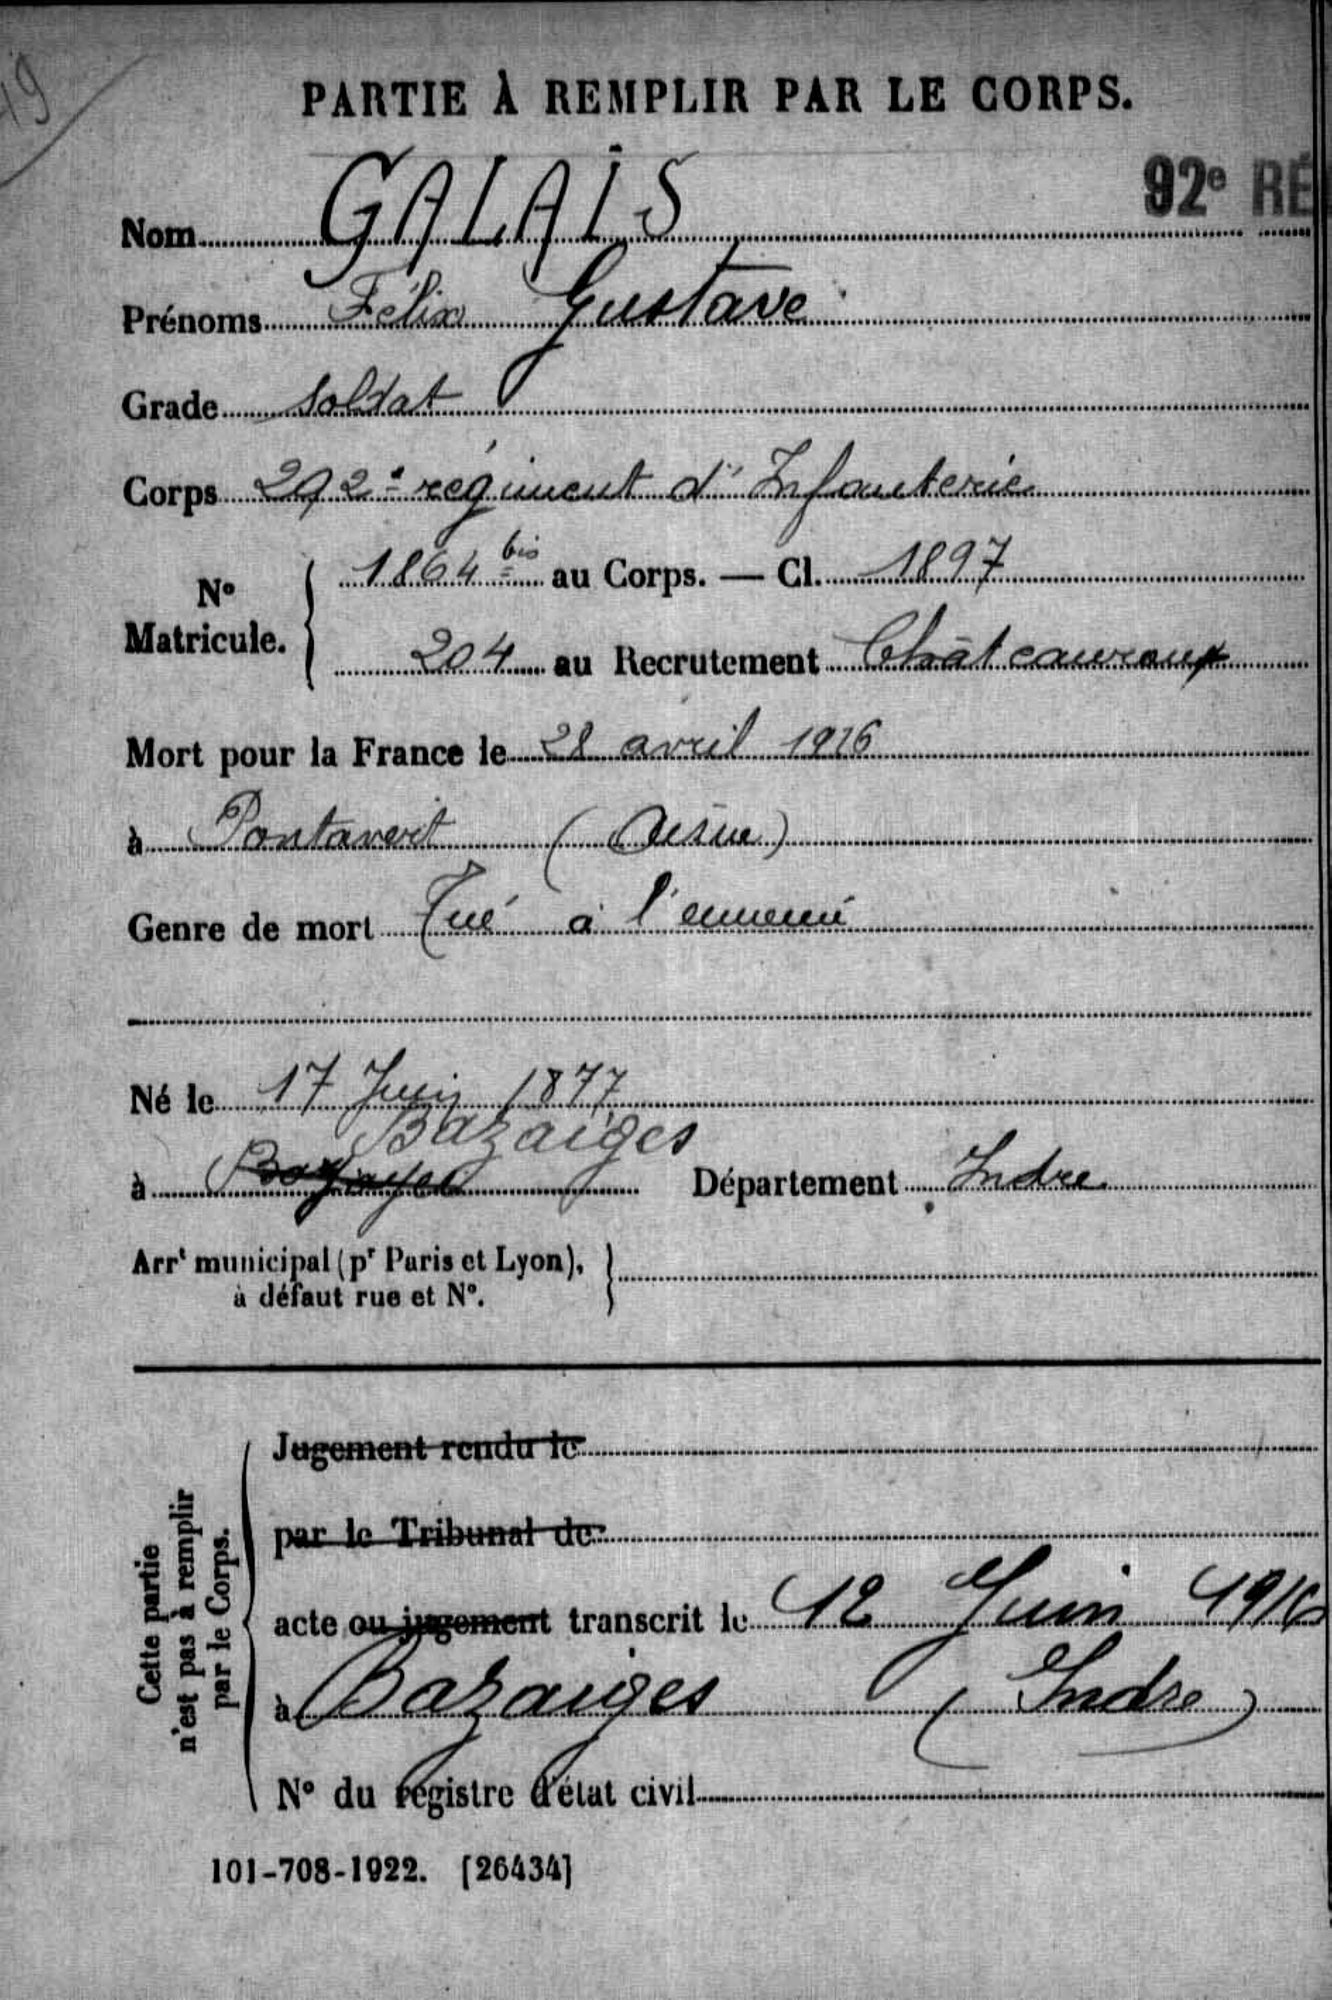 19
PARTIE À REMPLIR PAR LE CORPS.
92e RÉ
Nom GALAIS
Prénoms Félix Gustave
Grade soldat
Corps 292e régiment d'Infanterie
N° Matricule. 1864 bis au Corps. — Cl. 1897
204 au Recrutement Châteauroux
Mort pour la France le 28 avril 1916
à Pontavert (Aisne)
Genre de mort Tué à l'ennemi
Né le 17 Juin 1877
Bazaiges
à Département Indre
Arrt municipal (pr Paris et Lyon),
à défaut rue et N°.
Cette partie
n'est pas à remplir
par le Corps.
Jugement rendu le
par le Tribunal de
acte ou jugement transcrit le 12 Juin 1916
à Bazaiges (Indre)
N° du registre d'état civil
101-708-1922. [26434]